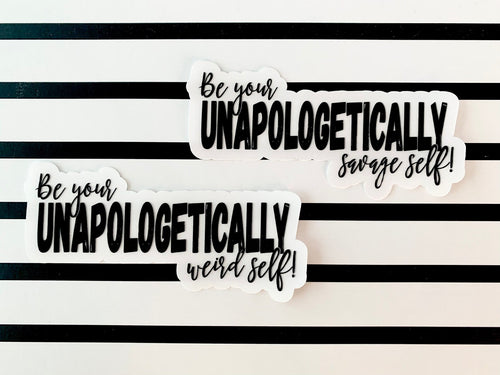 Be your
UNAPOLOGETICALLY
savage self!
Be your
UNAPOLOGETICALLY
weird self!